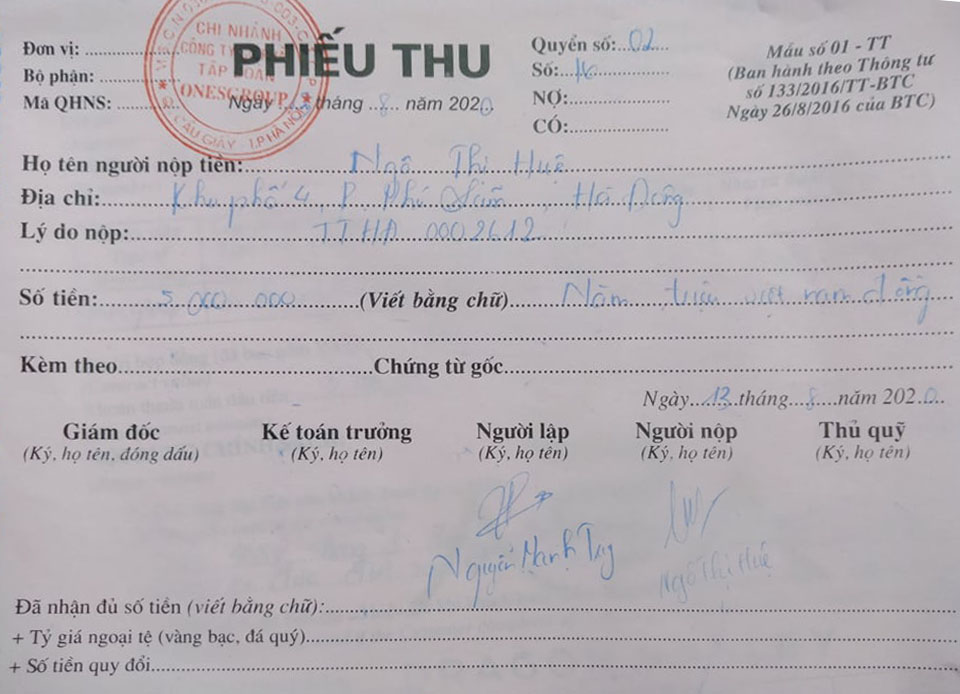 CHI NHÁNH
CÔNG TY
TẬP ĐOÀN
ONESGROUP
CẦU GIẤY - T.P HÀ NỘI
Đơn vị:
Bộ phận:
Mã QHNS:
PHIẾU THU
Ngày tháng 8 năm 2020
Quyển số: 02
Số:
NỢ:
CÓ:
Mẫu số 01 - TT
(Ban hành theo Thông tư
số 133/2016/TT-BTC
Ngày 26/8/2016 của BTC)
Họ tên người nộp tiền: Ngô Thị Huệ
Địa chỉ: Khu phố 4, P. Phú Hà Đông
Lý do nộp: TTHĐ 0002612
Số tiền: 5.000 000 (Viết bằng chữ) Năm triệu việt nam đồng
Kèm theo Chứng từ gốc
Ngày 13 tháng 8 năm 2020
Giám đốc Kế toán trưởng Người lập Người nộp Thủ quỹ
(Ký, họ tên, đóng dấu) (Ký, họ tên) (Ký, họ tên) (Ký, họ tên) (Ký, họ tên)
Nguyễn Mạnh Ngô Thị Huệ
Đã nhận đủ số tiền (viết bằng chữ):
+ Tỷ giá ngoại tệ (vàng bạc, đá quý)
+ Số tiền quy đổi